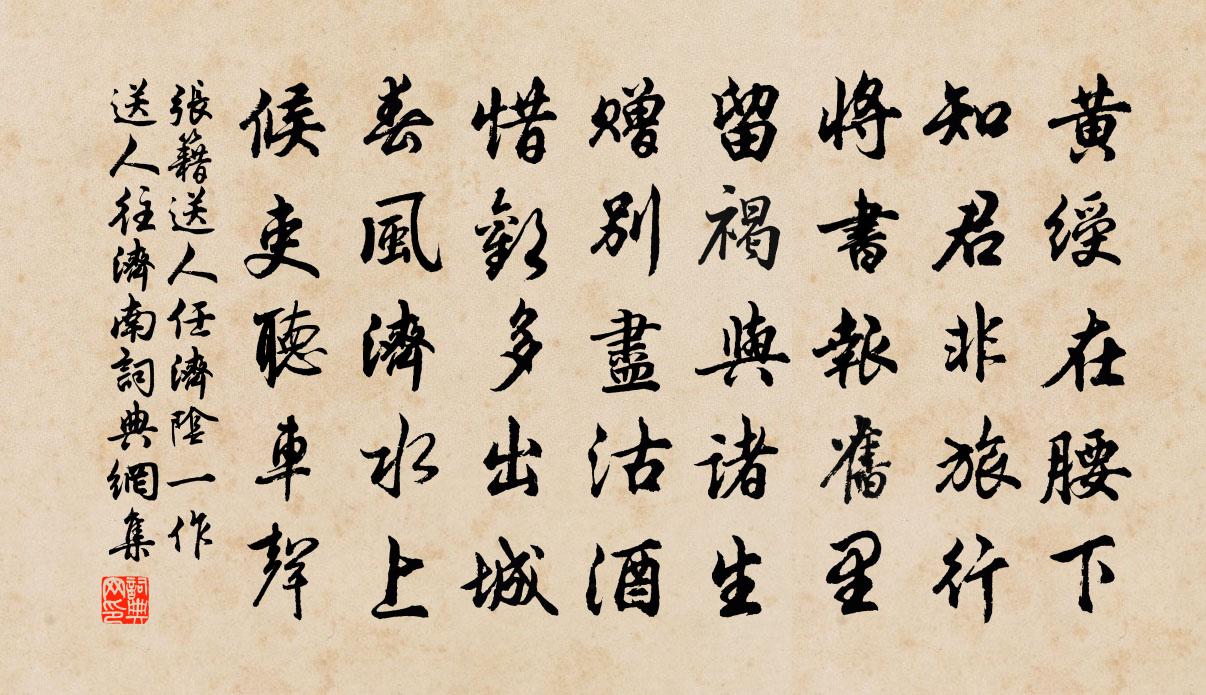 黃綬在腰下
知君非旅行
將書報舊里
留褐與諸生
贈別盡沽酒
惜歡多出城
春風濟水上
候吏聽車聲
張籍送人任濟陰一作
送人往濟南詞典網集
詞典网印